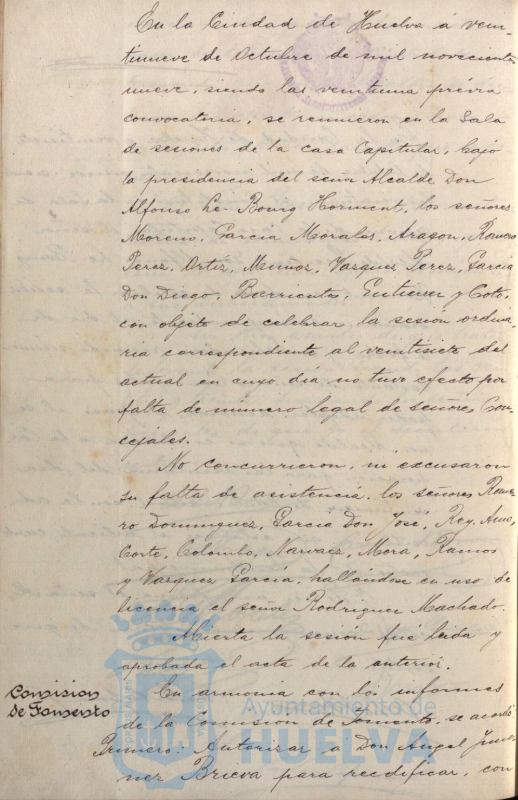 En la Ciudad de Huelva á vein-
tinueve de Octubre de mil novecientos
nueve, siendo las veintiuna prévia
convocatoria, se reunieron en la Sala
de sesiones de la casa Capitular, bajo
la presidencia del señor Alcalde Don
Alfonso Le-Bourg Horment, los señores
Moreno, García Morales, Aragon, Romero
Perez, Ortiz, Muñoz, Vazquez Perez, García
Don Diego, Barrientos, Gutierrez y Coto,
con objeto de celebrar la sesión ordina-
ria correspondiente al veintisiete del
actual en cuyo día no tuvo efecto por
falta de número legal de señores Con-
cejales.
No concurrieron, ni excusaron
su falta de asistencia, los señores Rome-
ro Dominguez, García Don José, Rey, Amo,
Corte, Colombo, Narvaez, Mora, Ramos
y Vazquez García, hallándose en uso de
licencia el señor Rodriguez Machado.
Abierta la sesión fué leida y
aprobada el acta de la anterior.
Comision
de Fomento
En armonia con los informes
de la Comision de Fomento, se acordó
Primero: Autorizar a Don Angel Jime-
nez Brieva para reedificar, con
Ayuntamiento de
HUELVA